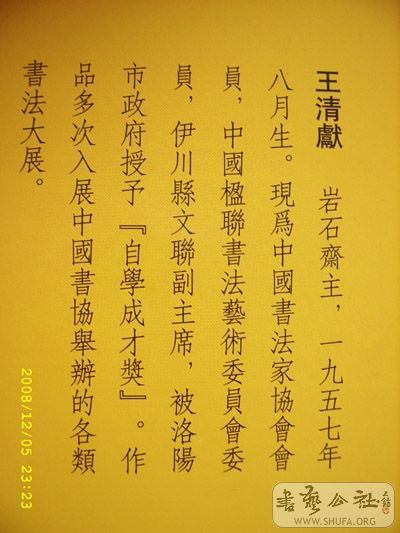 王清獻　岩石齋主，一九五七年
八月生。現爲中國書法家協會會
員，中國楹聯書法藝術委員會委
員，伊川縣文聯副主席，被洛陽
市政府授予『自學成才獎』。作
品多次入展中國書協舉辦的各類
書法大展。
2008/12/05 23:23
書藝公社
WWW.SHUFA.ORG